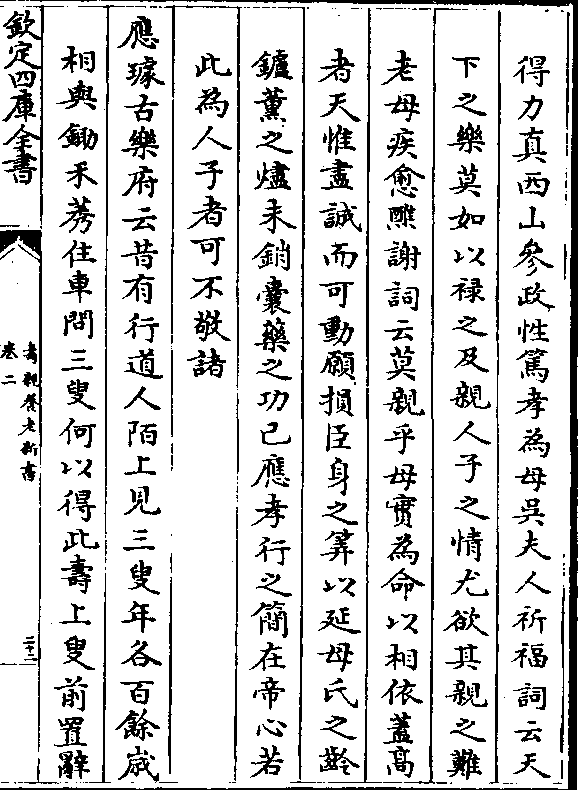 得力真西山參政性篤孝為母吳夫人祈福詞云天
下之樂莫如以祿之及親人子之情尤欲其親之難
老母疾愈醮謝詞云莫親乎母實為命以相依蓋高
者天惟盡誠而可動願損臣身之筭以延母氏之齡
鑪薰之燼未銷囊藥之功已應孝行之簡在帝心若
此為人子者可不敬諸
應璩古樂府云昔有行道人陌上見三叟年各百餘歲
相與鋤禾莠住車問三叟何以得此壽上叟前置辭
欽定四庫全書
壽親養老新書
卷二
二十二